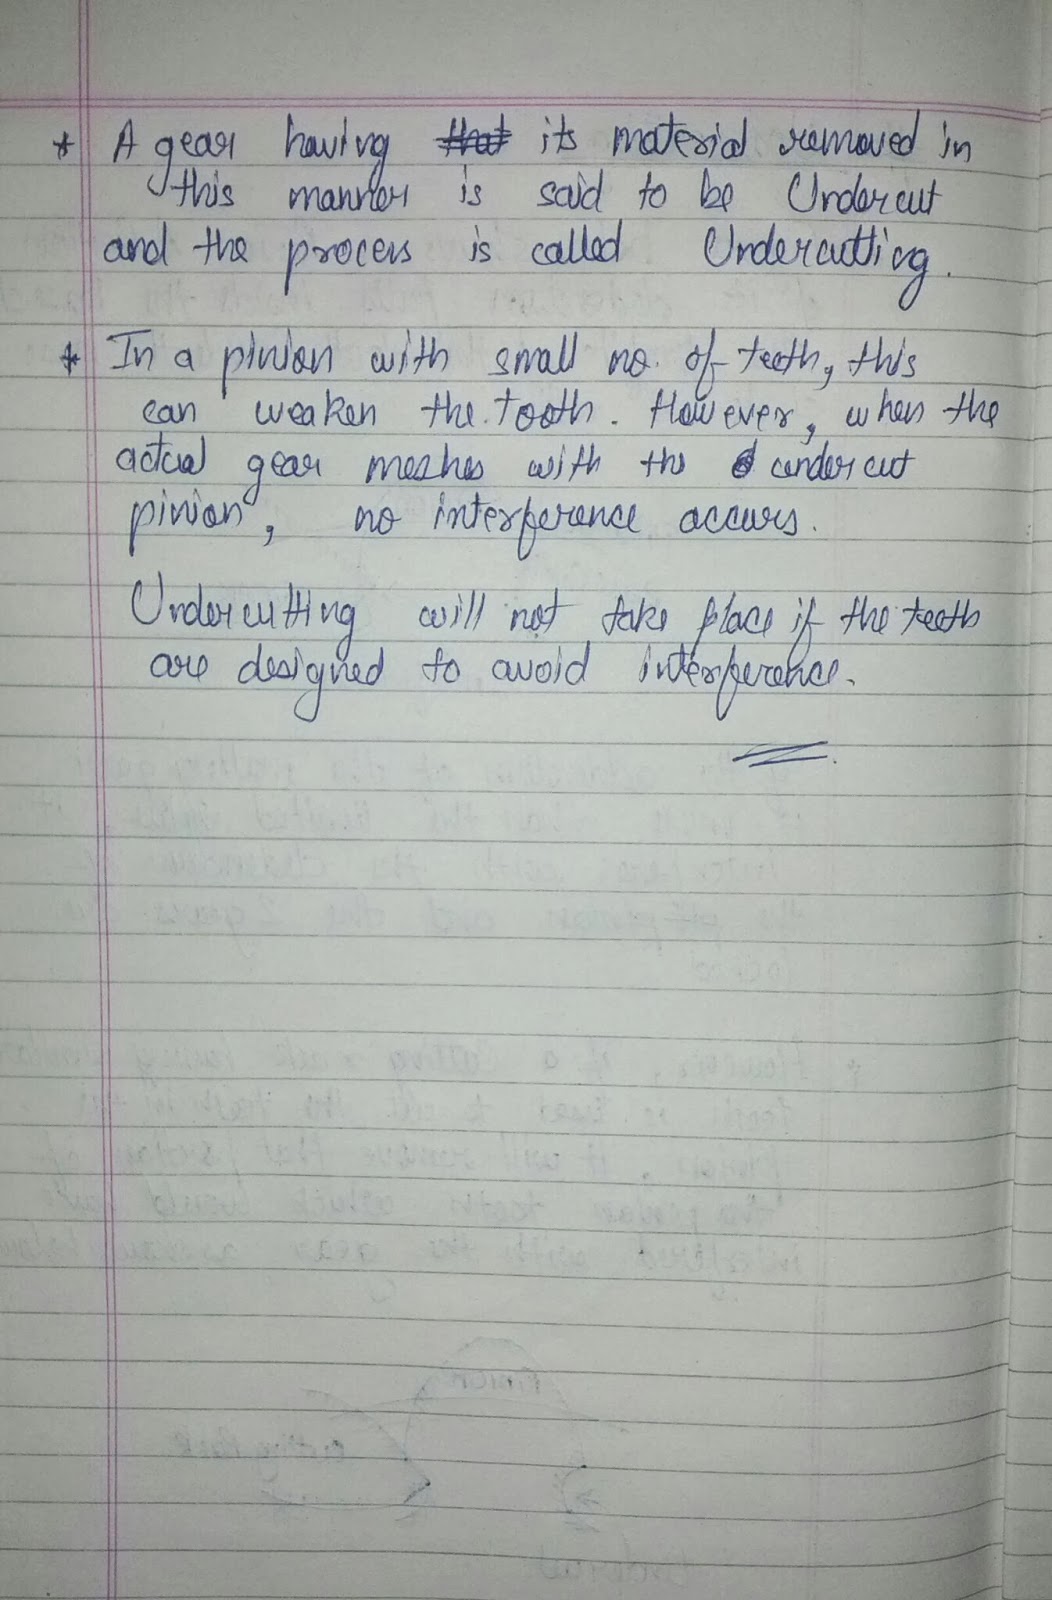 * A gear having that its material removed in
this manner is said to be Undercut
and the process is called Undercutting.
* In a pinion with small no. of teeth, this
can weaken the tooth. However, when the
actual gear meshes with the undercut
pinion, no interference occurs.
Undercutting will not take place if the teeth
are designed to avoid interference.